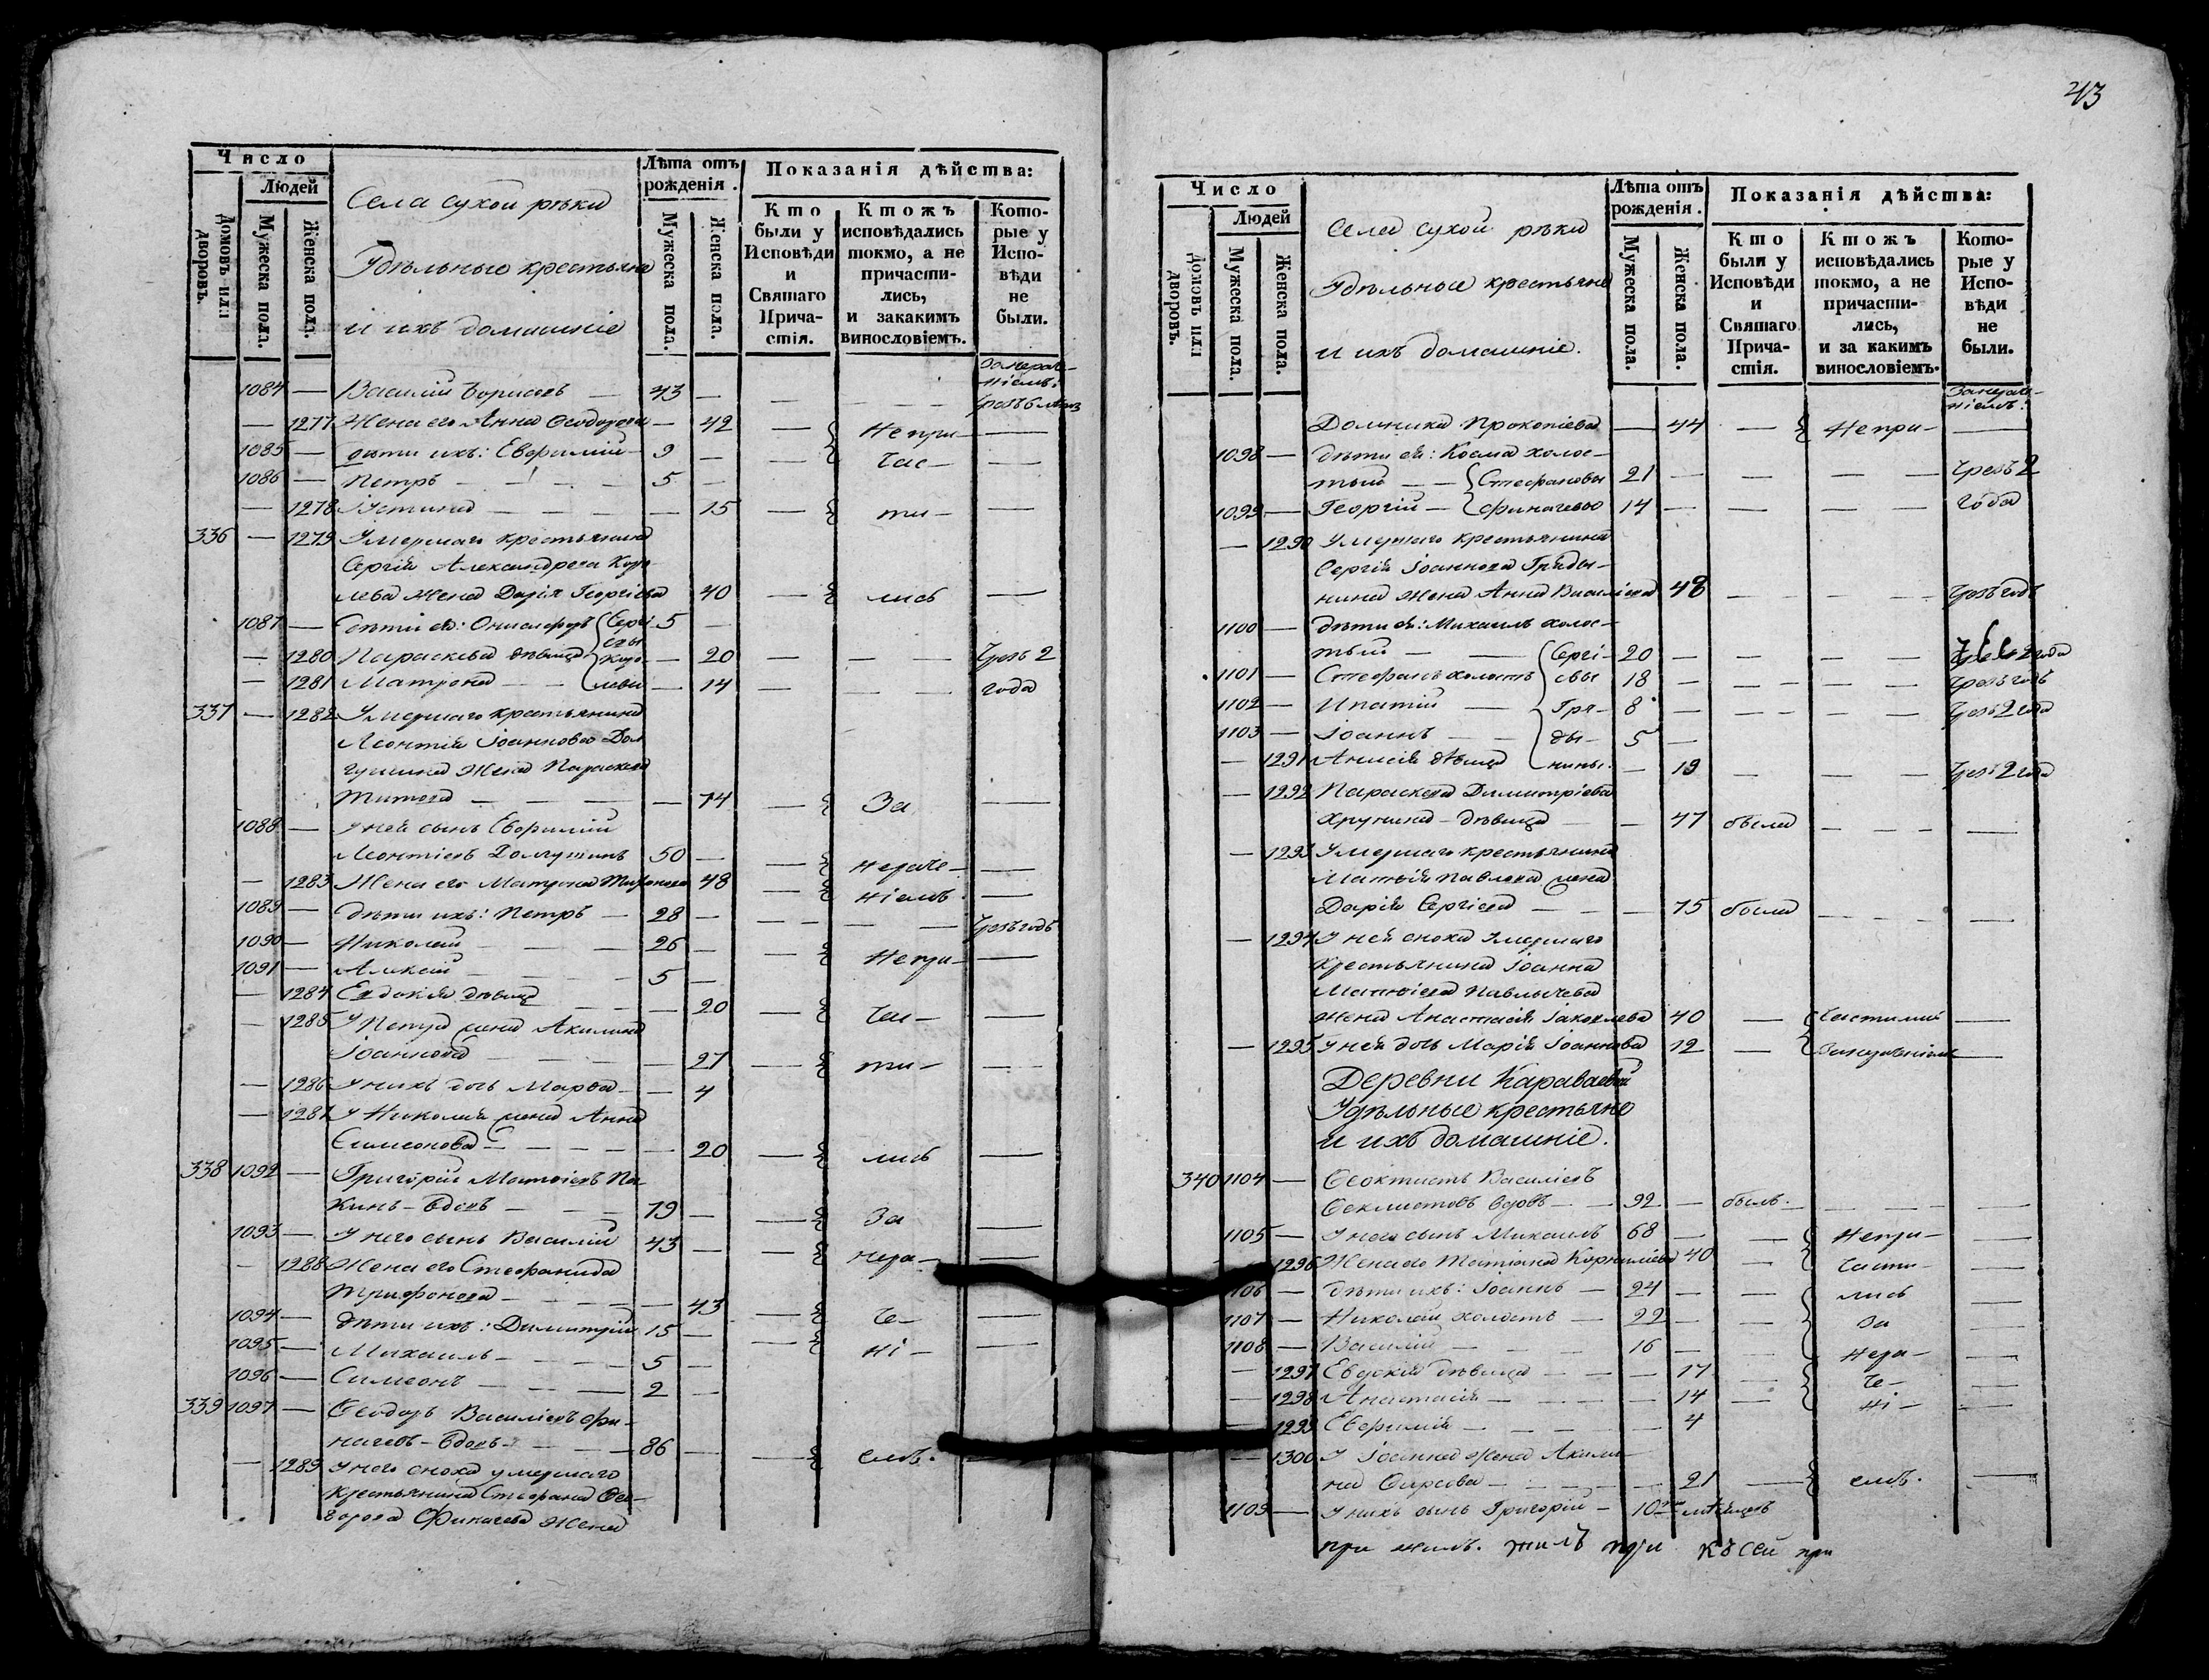 Число
Людей
Домовъ или дворовъ.
Мужеска пола.
Женска пола.
Села сухой рѣки
Удѣльные крестьяне
и ихъ домашніе
Лѣта отъ рожденія.
Мужеска пола.
Женска пола.
Показанія дѣйства:
Кто были у Исповѣди и Святаго Прича-стія.
Ктожъ исповѣдались токмо, а не причасти-лись, и закакимъ винословіемъ.
Кото-рые у Испо-вѣди не были.
1084 — Василій Борисовъ — 43 —
— 1277 Жена его Анна Ѳеодорова — 42 — Непри- —
1085 — дѣти ихъ: Евфимій 9 — — час- —
1086 — Петръ — 5 —
— 1278 Іустина — 15 — ти- —
336 — 1279 Умершаго крестьянина
Сергія Александрова
лева Жена Дарія Георгіева 40 — лись —
1087 — дѣти ея: Онисифоръ Сергі- 5 —
— 1280 Параскева дѣвица — 20 — — Чрезъ 2
— 1281 Матрона — 14 — — года
337 — 1282 Умершаго крестьянина
Леонтія Іоаннова Дол
гушина Жена Параскева
Титова — 74 — За —
1088 — У ней сынъ Евфимій
Леонтіевъ Долгушинъ 50 — — нераче- —
— 1283 Жена его Матрона 48 — ніемъ. —
1089 — дѣти ихъ: Петръ — 28 — — — Чрезъ годъ
1090 — Николай — 26 — — Непри- —
1091 — Алексій — 5 —
— 1284 Евдокія дѣвица — 20 — час- —
— 1285 У Петра жена Акилина
Іоаннова — 27 — ти- —
— 1286 У нихъ дочь Марѳа — 4
— 1287 У Николая жена Анна
Симеонова — 20 — лись —
338 1092 — Григорій Матѳіевъ Па-
кинъ - вдовъ — 79 — — За —
1093 — У него сынъ Василій 43 — — нера- —
— 1288 Жена его Стефанида
Трифонова — 43 — че- —
1094 — дѣти ихъ: Димитрій 15 — — ні- —
1095 — Михаилъ — 5 —
1096 — Симеонъ — 2 —
339 1097 — Ѳеодоръ Василіевъ Фи-
начевъ - вдовъ — 86 — — емъ. —
— 1289 У него сноха умершаго
крестьянина Стефана Ѳео-
дорова Финачева жена
43
Число
Людей
Домовъ или дворовъ.
Мужеска пола.
Женска пола.
Села сухой рѣки
Удѣльные крестьяне
и ихъ домашніе.
Лѣта отъ рожденія.
Мужеска пола.
Женска пола.
Показанія дѣйства:
Кто были у Исповѣди и Святаго Прича-стія.
Ктожъ исповѣдались токмо, а не причасти-лись, и за какимъ винословіемъ.
Кото-рые у Испо-вѣди не были.
Домника Прокопіева — 44 — Непри- —
1098 — дѣти ея: Косма холос-
тый — Стефановы 21 — — — Чрезъ 2
1099 — Георгій — Финачевы 14 — — — года
— 1290 Умершаго крестьянина
Сергія Іоаннова Гряды-
нина жена Анна Василіева 48 — — — Чрезъ годъ
1100 — дѣти ея: Михаилъ холос-
тый — Сергі- 20 — — — 2 года
1101 — Стефанъ холостъ евы 18 — — — Чрезъ годъ
1102 — Ипатій — Гря- 8 — — — Чрезъ 2 года
1103 — Іоаннъ — ды- 5 —
— 1291 Анисія дѣвица нины. — 19 — — — Чрезъ 2 года
— 1292 Параскева Димитріева
дѣвица — 47 была — — —
— 1293 Умершаго крестьянина
Матѳія Павлова жена
Дарія Сергіева — 75 была — — —
— 1294 У ней сноха умершаго
крестьянина Іоанна
Матѳіева Павлычева
жена Анастасія Іаковлева 40 —
— 1295 У ней дочь Марія Іоаннова 12 —
Деревни Караваевой
Удѣльные крестьяне
и ихъ домашніе.
340 1104 — Ѳеоктистъ Василіевъ
Ѳеклистовъ вдовъ — 92 — былъ. — — —
1105 — У него сынъ Михаилъ 68 — — Непри- —
— 1296 Жена его Татіана Корниліева 40 — части- —
1106 — дѣти ихъ: Іоаннъ — 24 — — лись —
1107 — Николай холостъ — 22 — — За —
1108 — Василій — 16 — — нера- —
— 1297 Евдокія дѣвица — 17 — че- —
— 1298 Анастасія — 14 — ні- —
— 1299 Евфимія — 4
— 1300 У Іоанна жена Акили-
на — 21 — емъ. —
1109 — У нихъ сынъ Григорій — 10 мѣсяцевъ
при жилъ при къ сей при